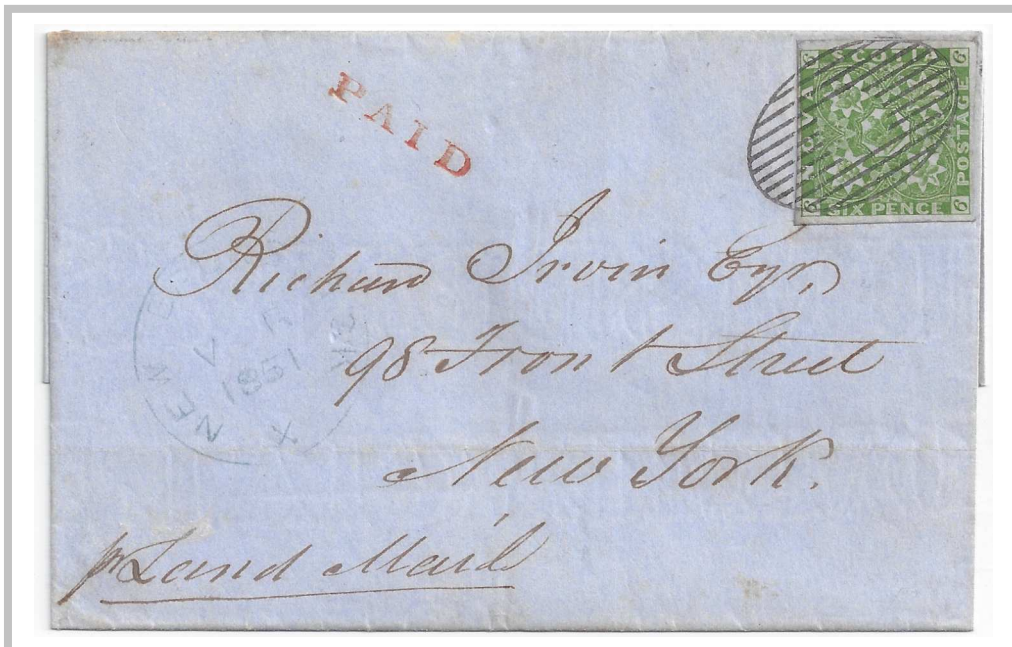 PAID
NOVA SCOTIA POSTAGE SIX PENCE
6 6 6 6
Richard Irvin Esqr,
98 Front Street
New York.
pr Land Mail
NEW
1851